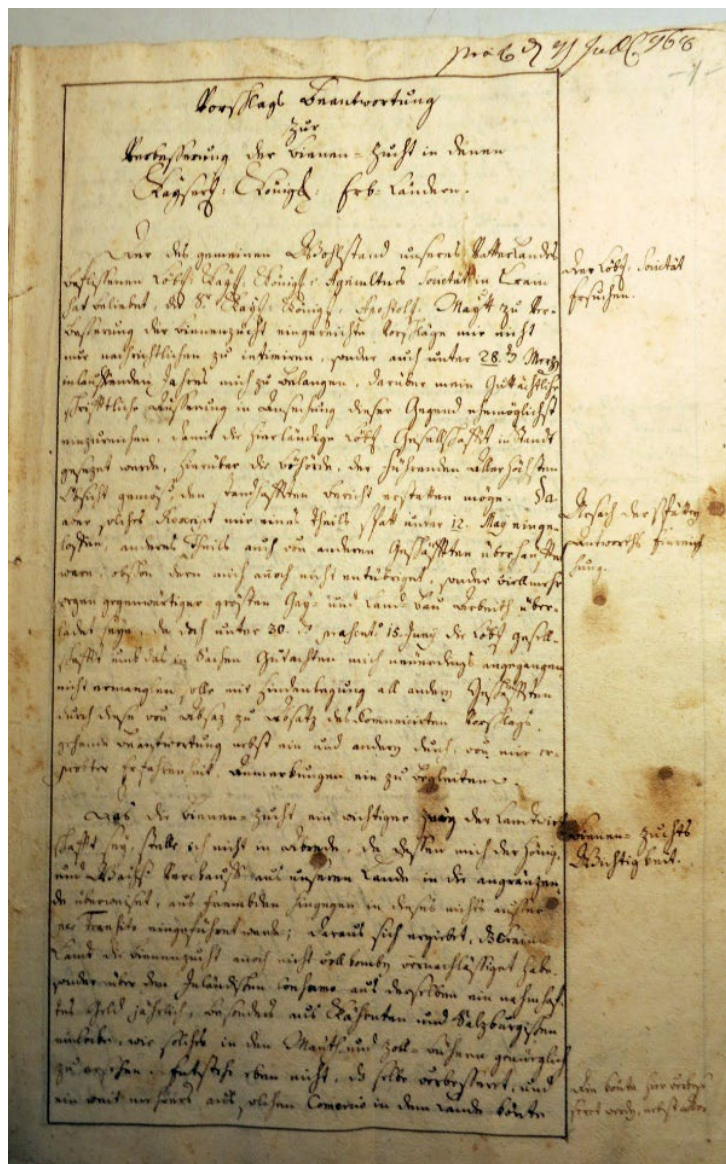 Vorschlags Beantwortung
zur
Verbesserung der Bienen-Zucht in denen
Kayserl: Königl: Erb-Ländern.
Der des gemeinen Wohlstand unseres Vatterlandes
beflissenen Löbl: Kayl: Königl: Agricultur Societät in Crain
hat beliebt, die Sr Kayl: Königl: Apostol: Maytt zu Ver-
besserung der Bienenzucht eingereichte Vorschläge mir nicht
nur nachrichtlichen zu intimiren, sonder auch unter 28. Merzy
inlauffenden Jahres mich zu belangen, darüber mein Guttächtliche
schrifftliche Äusserung in Ansechung dieser Gegend ehemöglichst
einzureichen, damit die hierländige Löbl Gesellschafft in Standt
gesezet werde, hierüber die Böhörde, der führenden Allerhöchsten
Absicht gemöß, den standhafften Bericht erstatten möge. Da
aber solches Rescript mir eines Theils spätt unter 12. May einge-
loffen, anderes Theils auch von anderen Geschäfften überhaufft
ware, obschon dern mich annoch nicht entübriget, sonder villmehr
wegen gegenwärtiger grösten Hay- und Land-Bau Arbeith über-
ladet seye, da doch unter 30. 15. Juny die Löbl Gesell-
schafft umb das in Sachen Gutachten mich neuerdings angegangen
nicht ermanglen, solle mit hindentsagung all andern Geschäfften
durch diese von Absaz zu Absatz des Vorschlags
gehende Beantwortung nebst ein und andern durch von mir er-
probter Erfahrenheit, Anmerkungen ein zu begleiten.
Das die Bienen-Zucht ein wichtiger Zweig der Landwirt
schafft sey, stelle ich nicht in Abrede, da dessen mich der Hönig-
und Wachs Verckauff aus unseren Lande in die angränzen-
de überweiset, aus frembden hingegen in dieses nichts ausser
per Transito eingeführet werde; daraus sich ergiebet, das Crain
Land die Bienenzucht annoch nicht vollkomben vernachlässiget habe
sonder über den Inländischen Consumo aus derselben ein nahmhaff-
tes Geld jährlich, besonders aus Kährnten und Salzburgischen
einlocke, wie solches in den Mauth und Zoll-Büchern genüeglich
zu ersehen. eben nicht, das selbe verbesseret, und
ein weit mehrers aus solchen Comercio in dem Lande könte
Der Löbl: Societät
Ersuchen.
Ursach der spätten
Antworths Einreich
hung.
Bienen-Zuchts
Wichtigkeit.
könte hier verbes
seret werden, nebst